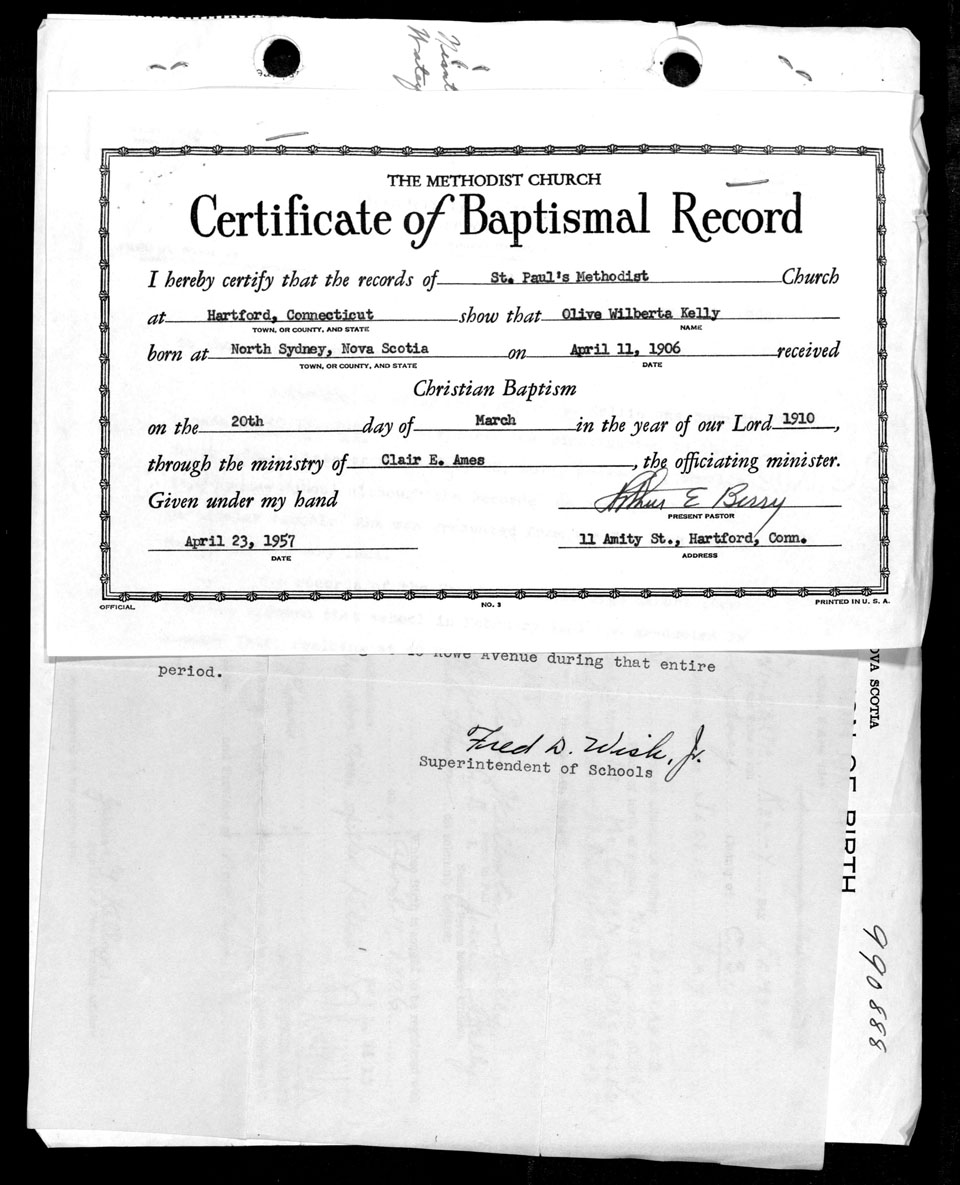 THE METHODIST CHURCH
Certificate of Baptismal Record
I hereby certify that the records of St. Paul's Methodist Church
at Hartford, Connecticut show that Olive Wilberta Kelly
TOWN, OR COUNTY, AND STATE NAME
born at North Sydney, Nova Scotia on April 11, 1906 received
TOWN, OR COUNTY, AND STATE DATE
Christian Baptism
on the 20th day of March in the year of our Lord 1910,
through the ministry of Clair E. Ames, the officiating minister.
Given under my hand Arthur E Berry
PRESENT PASTOR
April 23, 1957 11 Amity St., Hartford, Conn.
DATE ADDRESS
OFFICIAL NO. 3 PRINTED IN U. S. A.
Avenue during that entire
period.
Fred D. Wish, Jr.
Superintendent of Schools
OVA SCOTIA
OF BIRTH
990888